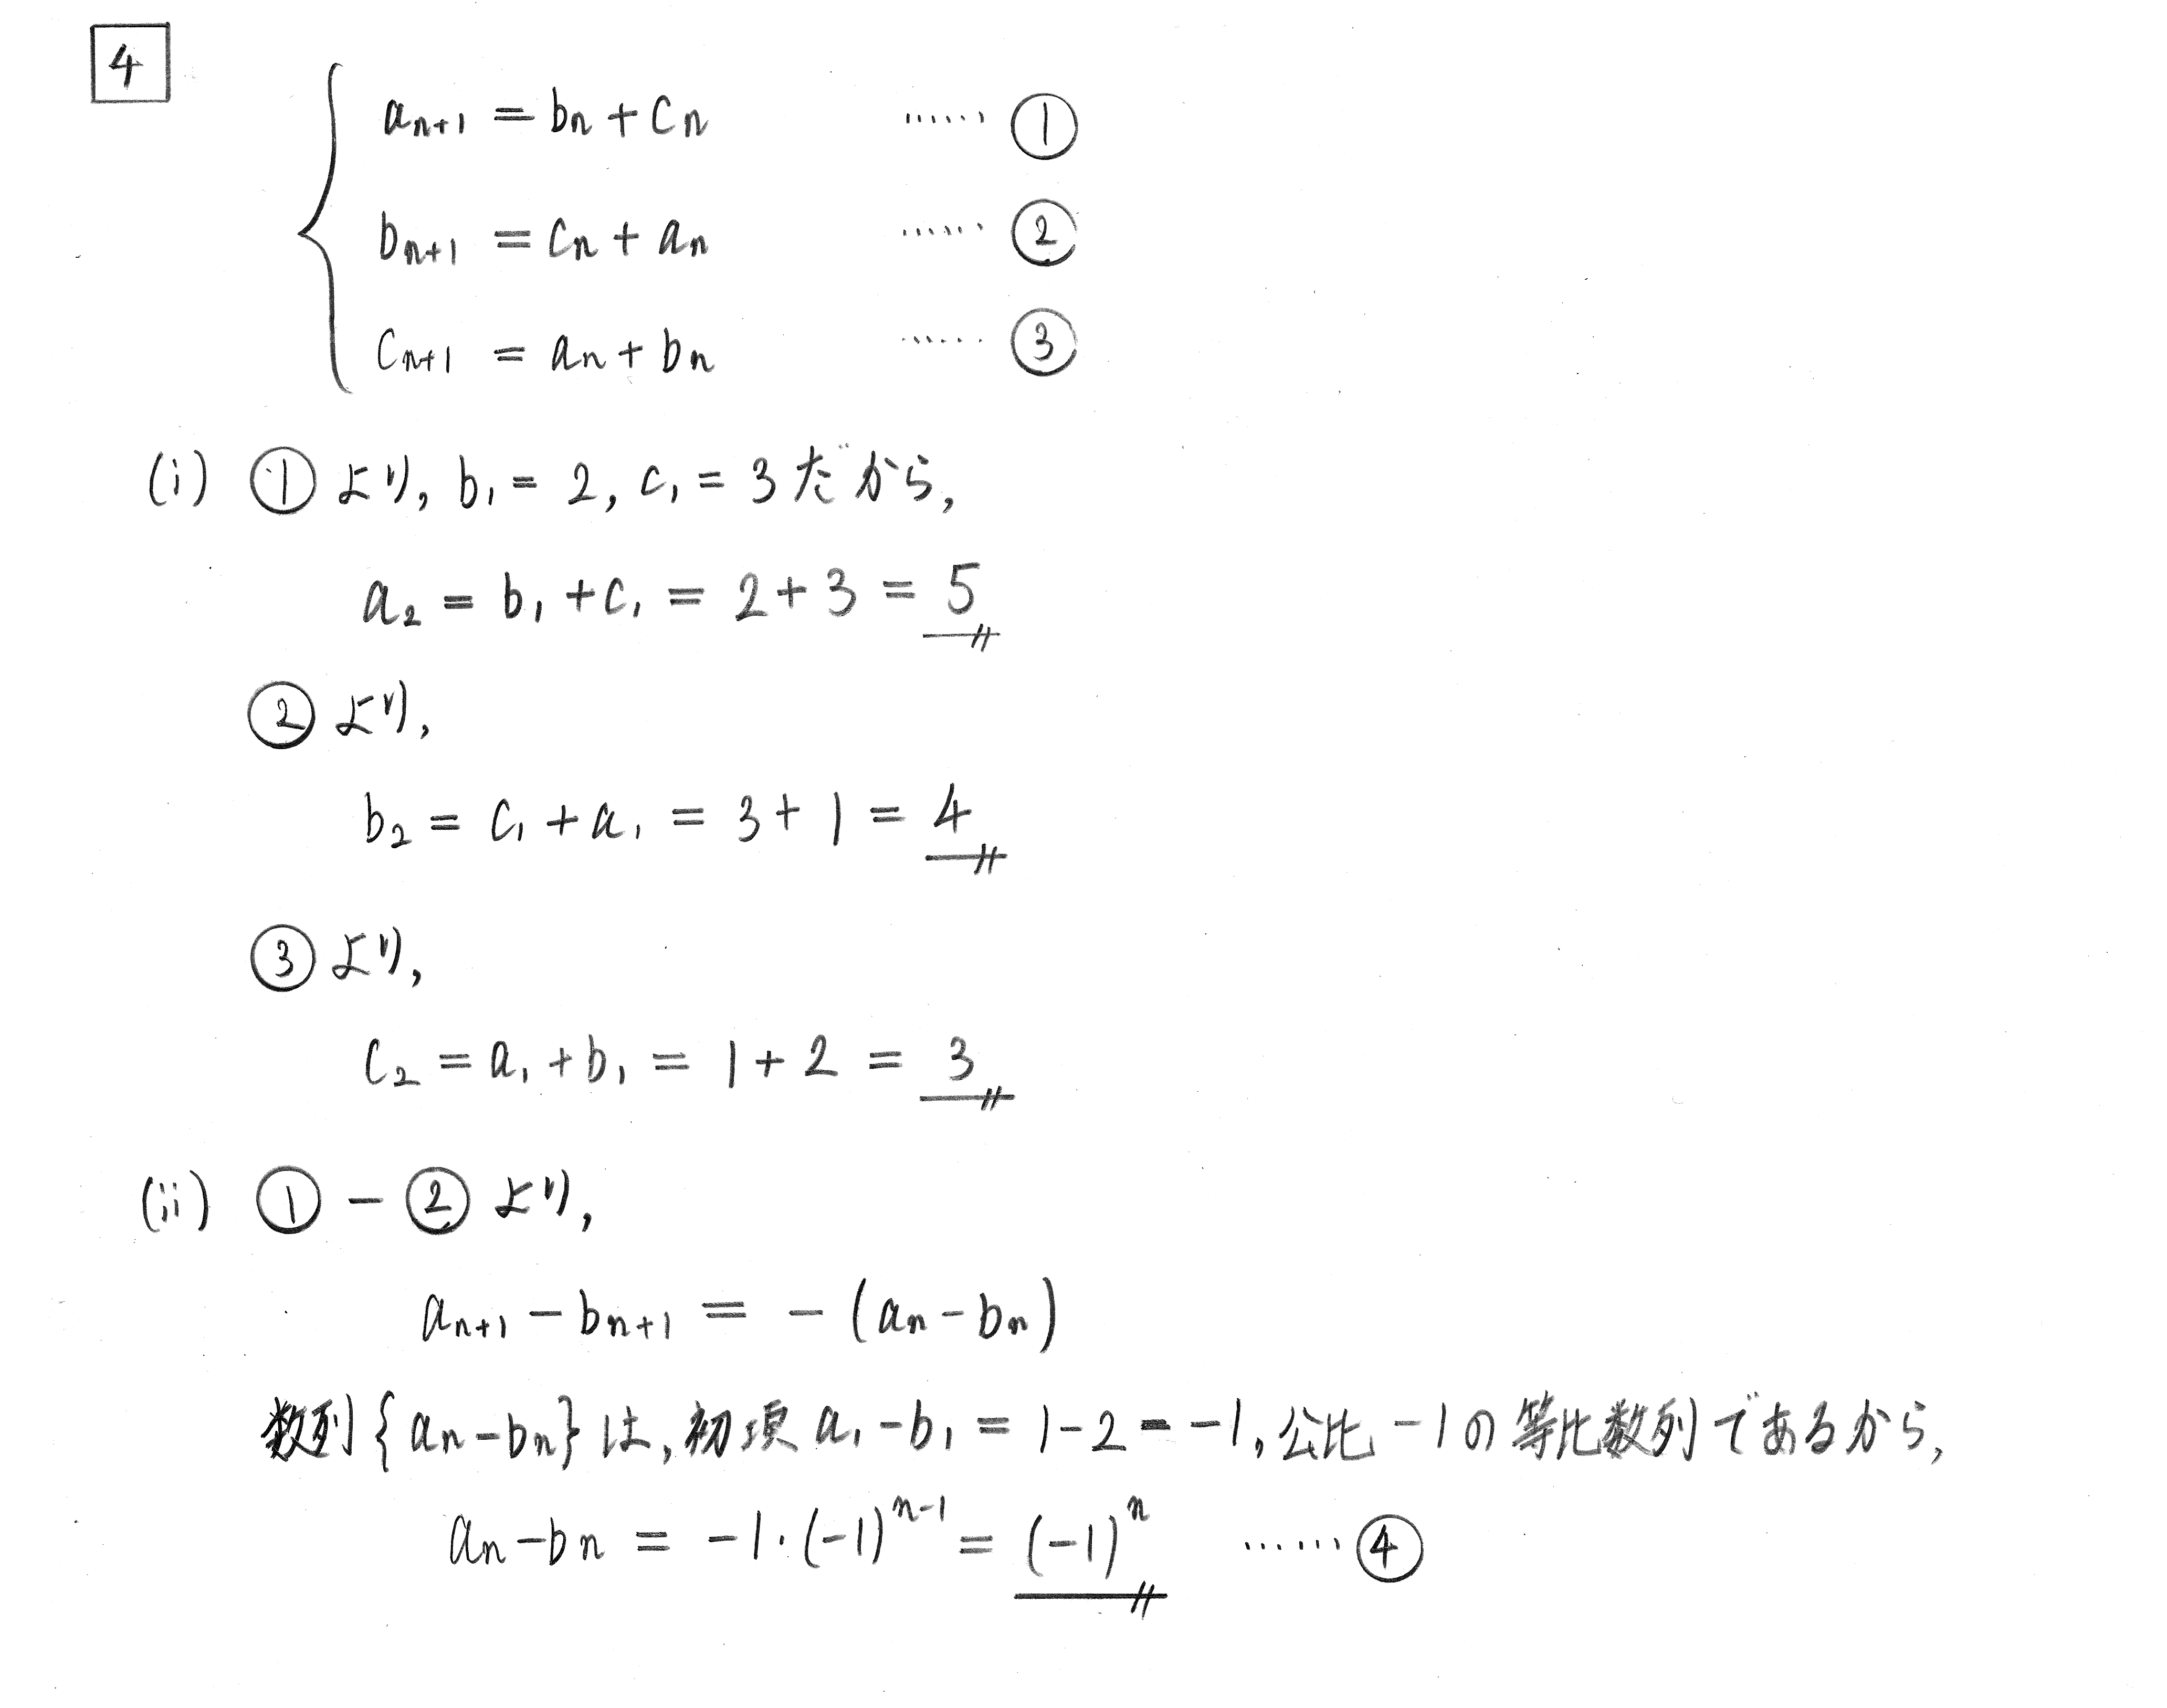 4
a_{n+1} = b_n + c_n ...... ①
b_{n+1} = c_n + a_n ...... ②
c_{n+1} = a_n + b_n ...... ③
(i) ①より, b₁ = 2, c₁ = 3だから,
a₂ = b₁ + c₁ = 2 + 3 = 5
②より,
b₂ = c₁ + a₁ = 3 + 1 = 4
③より,
c₂ = a₁ + b₁ = 1 + 2 = 3
(ii) ① − ② より,
a_{n+1} − b_{n+1} = − (a_n − b_n)
数列{a_n − b_n}は, 初項 a₁ − b₁ = 1 − 2 = −1, 公比 −1の等比数列であるから,
a_n − b_n = −1・(−1)^{n−1} = (−1)^n ...... ④